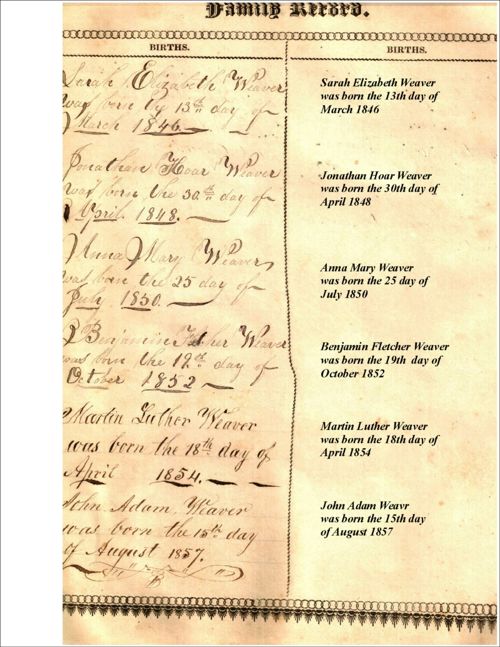 Family Record.
BIRTHS.
Sarah Elizabeth Weaver
was born the 13th day of
March 1846.
Jonathan Hoar Weaver
was born the 30th day of
April. 1848.
Anna Mary Weaver
was born the 25 day of
July. 1850.
Benjamin Fletcher Weaver
was born the 19th day of
October 1852
Martin Luther Weaver
was born the 18th day of
April 1854.
John Adam Weaver
was born the 15th day
of August 1857.
BIRTHS.
Sarah Elizabeth Weaver
was born the 13th day of
March 1846
Jonathan Hoar Weaver
was born the 30th day of
April 1848
Anna Mary Weaver
was born the 25 day of
July 1850
Benjamin Fletcher Weaver
was born the 19th day of
October 1852
Martin Luther Weaver
was born the 18th day of
April 1854
John Adam Weavr
was born the 15th day
of August 1857